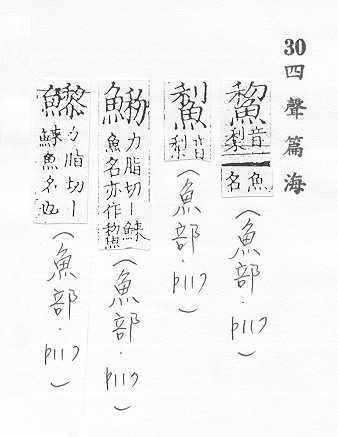 30 四聲篇海
鯬 音梨 魚名 (魚部.P117)
音梨 (魚部.P117)
力脂切｜鯠魚名亦作鯬 (魚部.P117)
力脂切｜鯠魚名也 (魚部.P117)